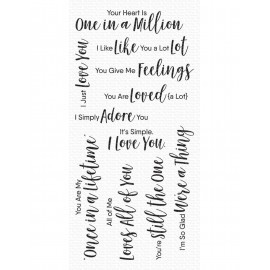 Your Heart Is
One in a Million
I Just Love You
I Like Like You a Lot Lot
You Give Me Feelings
You Are Loved {a Lot}
I Simply Adore You
It's Simple.
I Love You.
You Are My
"Once in a Lifetime"
All of Me
Loves All of You
You're still the One
I'm So Glad We're a Thing